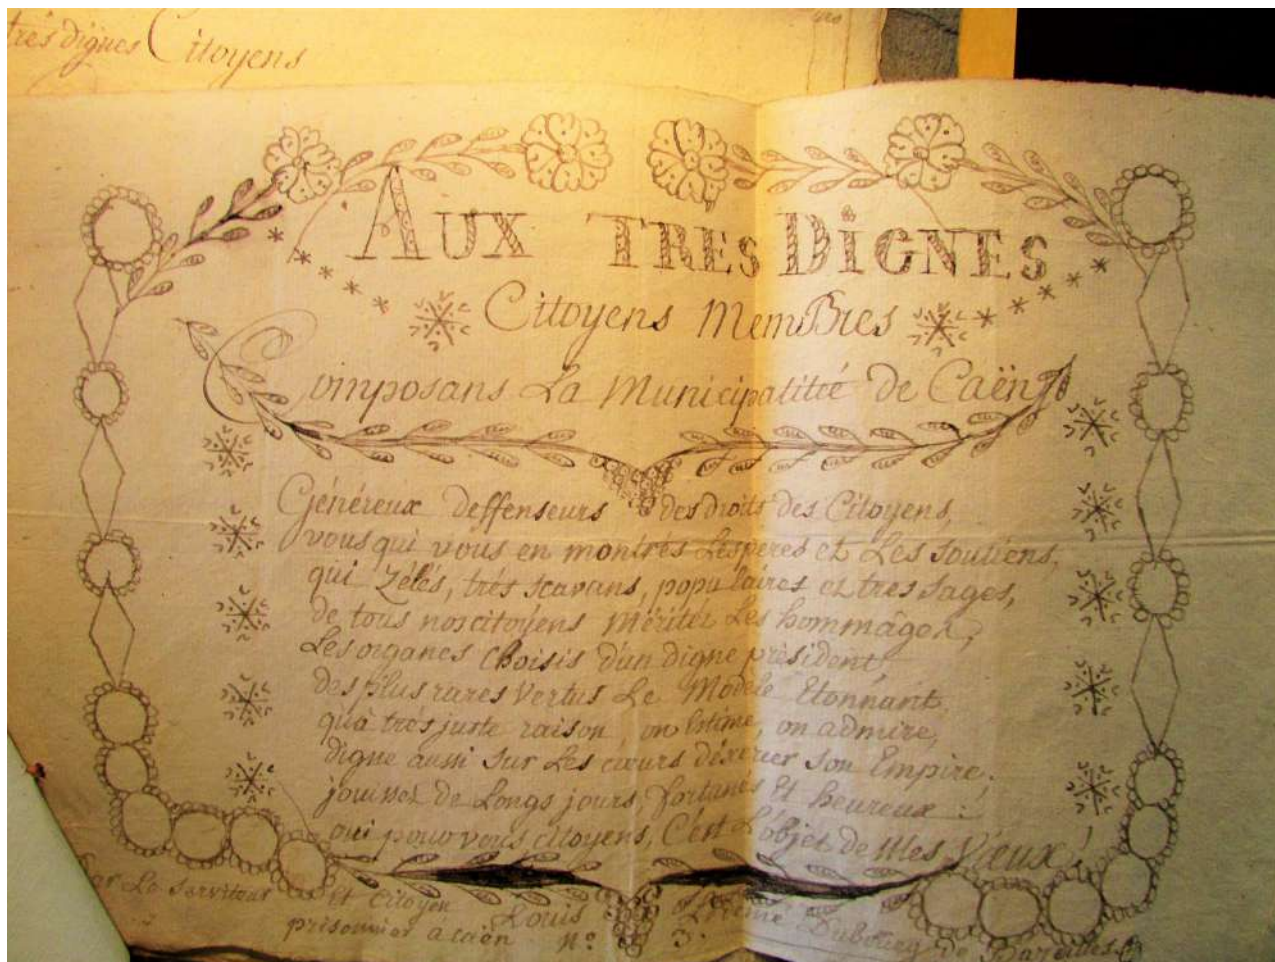 très dignes Citoyens
AUX TRES DIGNES
Citoyens MemBres
Composans La Municipalitté de Caën
Généreux deffenseurs des droits des Citoyens,
vous qui vous en montrés Les peres et Les soutiens,
qui Zélés, très scavans, populaires et tres sages,
de tous nos citoyens Méritez Les hommâges,
Les organes Choisis d'un digne président,
des plus rares Vertus Le Modele Etonnant,
qu'à très juste raison, on Estime, on admire,
digne aussi sur Les cœurs d'exercer son Empire,
jouissez de Longs jours, fortunés Et heureux :
oui pour vous citoyens, C'est L'objet de Mes Vœux !
Par Le serviteur Et Citoyen Louis Dubourg de
prisonnier a caën n.° 3.